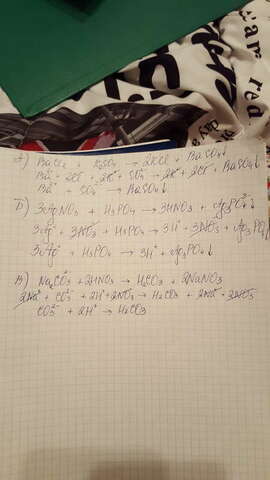 А) BaCl2 + K2SO4 → 2KCl + BaSO4↓
Ba²⁺ + 2Cl⁻ + 2K⁺ + SO4²⁻ → 2K⁺ + 2Cl⁻ + BaSO4↓
Ba²⁺ + SO4²⁻ → BaSO4↓
Б) 3AgNO3 + H3PO4 → 3HNO3 + Ag3PO4↓
3Ag⁺ + 3NO3⁻ + H3PO4 → 3H⁺ + 3NO3⁻ + Ag3PO4↓
3Ag⁺ + H3PO4 → 3H⁺ + Ag3PO4↓
В) Na2CO3 + 2HNO3 → H2CO3 + 2NaNO3
2Na⁺ + CO3²⁻ + 2H⁺ + 2NO3⁻ → H2CO3 + 2Na⁺ + 2NO3⁻
CO3²⁻ + 2H⁺ → H2CO3